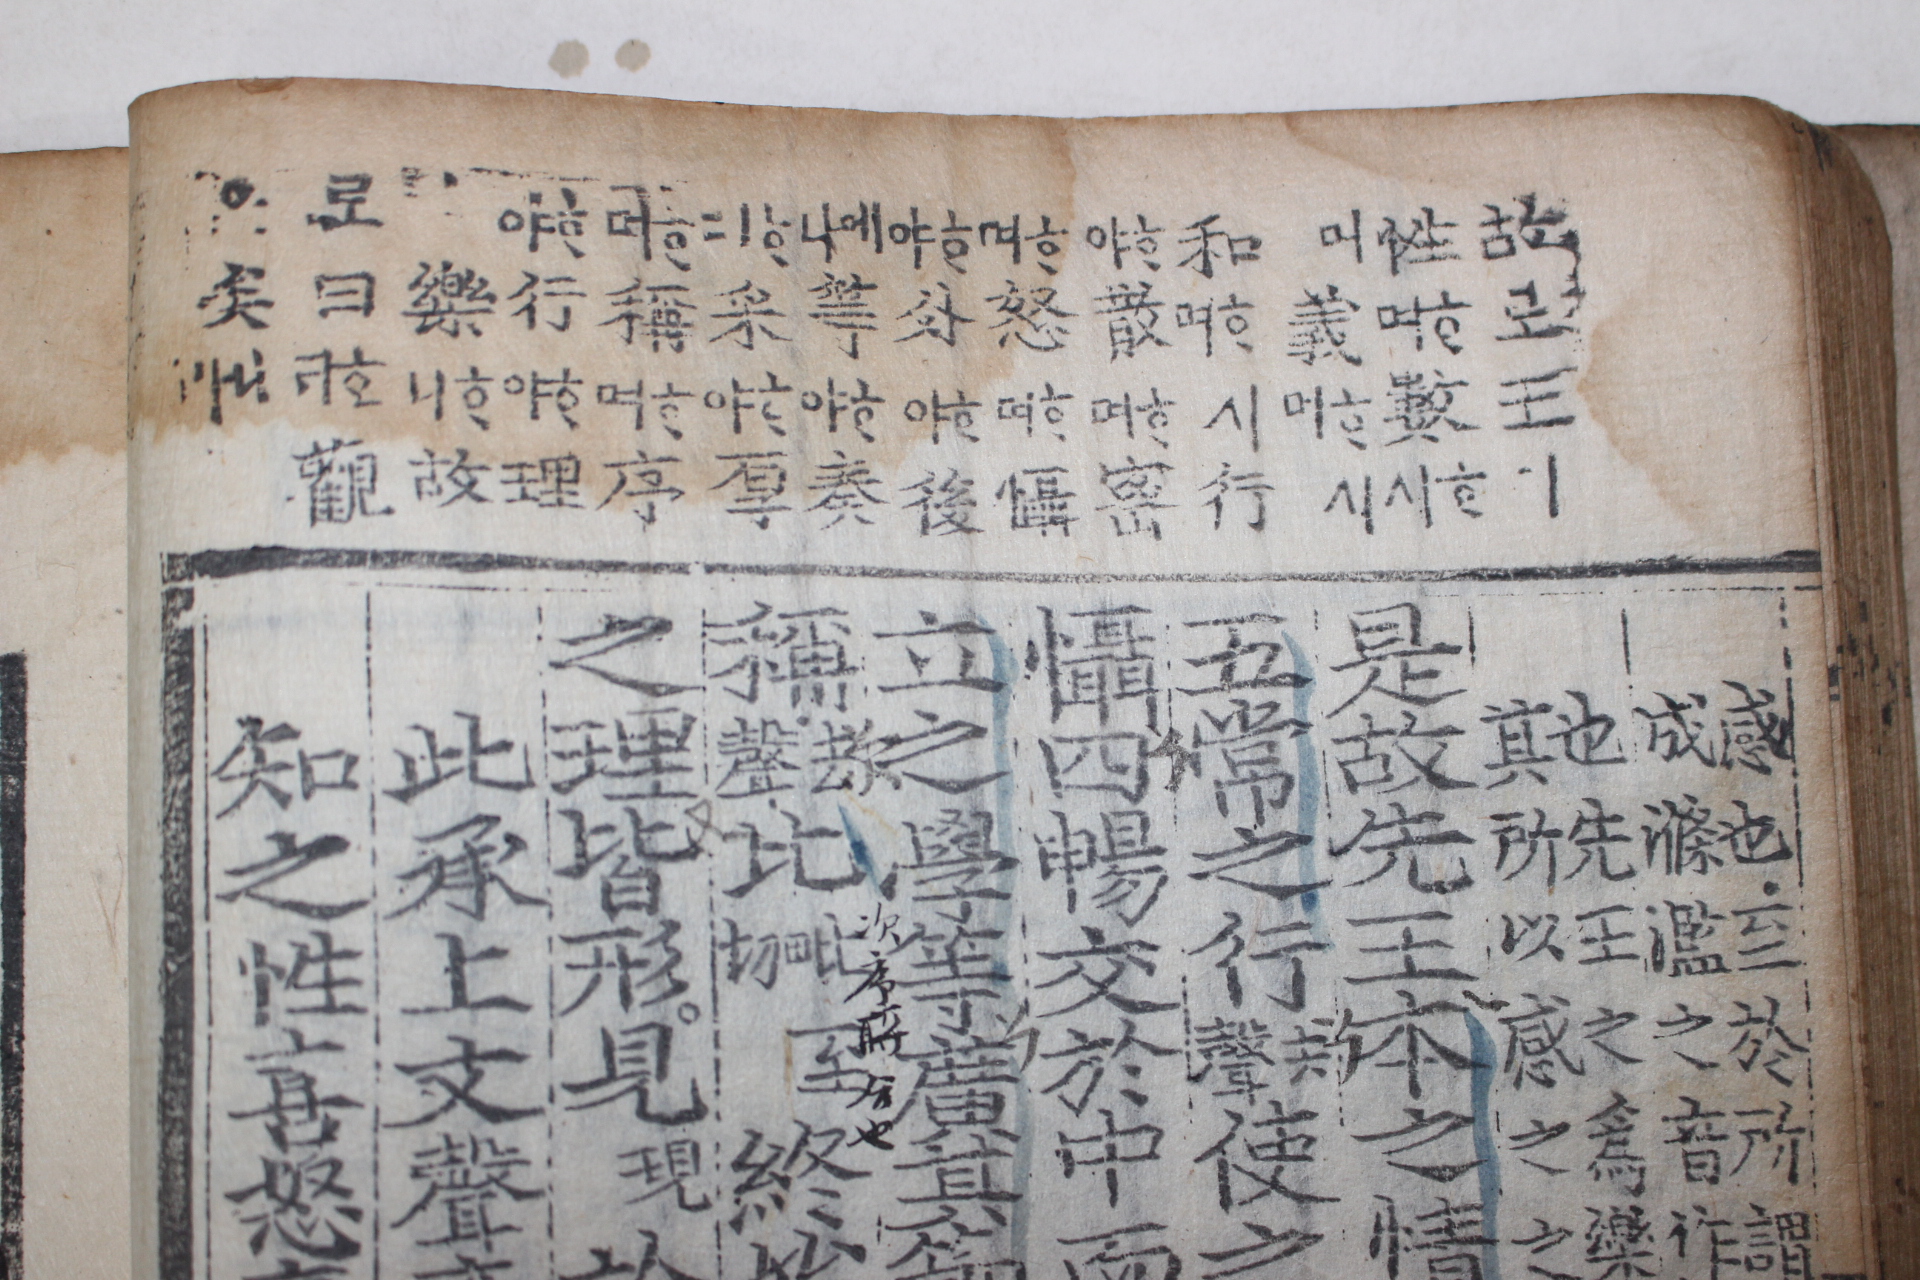 故로王이
性며ᄒᆞ數시ᄒᆞ
며義며ᄒᆞ시
和며ᄒᆞ시行
야ᄒᆞ散며ᄒᆞ密
며ᄒᆞ怒며ᄒᆞ懾
야ᄒᆞ分야ᄒᆞ後
나에等야ᄒᆞ奏
采야ᄒᆞ厚
며ᄒᆞ稱며ᄒᆞ序
야ᄒᆞ行야ᄒᆞ理
樂니ᄒᆞ故
로曰라ᄒᆞ觀
矣
感也至於所謂
成滌濫之音作
也先王之爲樂
其所以感之之
是故先王本之情
五常之行去聲使之
懾四暢交於中而
立之學等廣其節
稱去聲比毗至切終始
次序所爲也
之理皆形見現於
此承上文聲
知之性喜怒